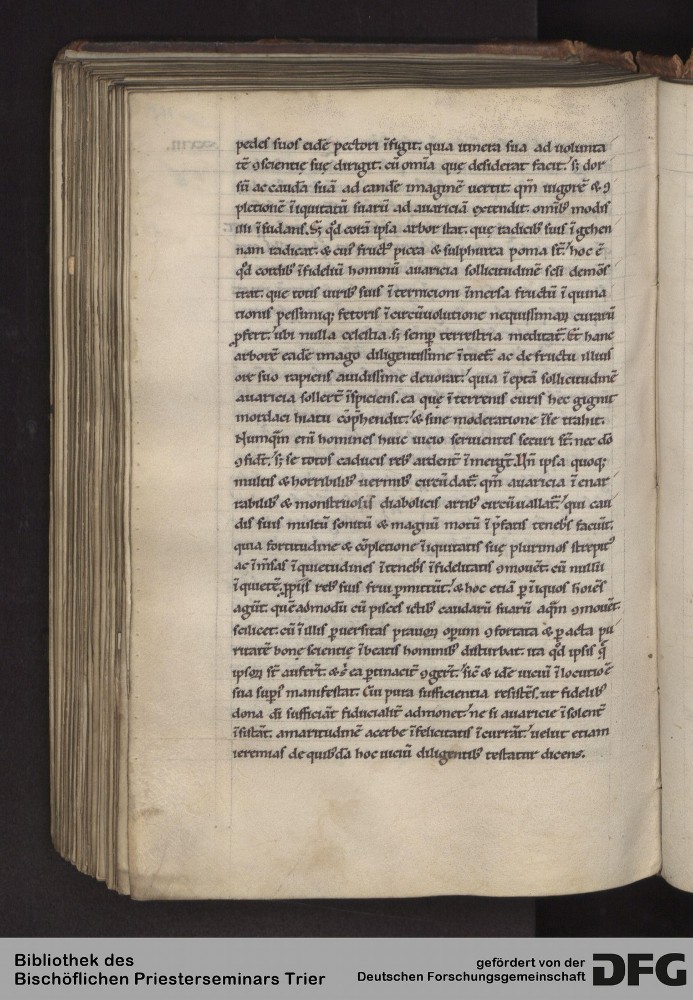 pedes suos eidē pectori īfigit. quia itinera sua ad volunta
tē ꝯscientię suę dirigit. cū om̄ia quę desiderat facit. sꝫ dor
sū ac caudā suā ad eandē imaginē vertit. qm̄ vigorē & ꝯ
pletionē īiquitatū suarū ad avariciā extendit. omībꝰ modis
illi īsudans. Sꝫ qd̄ corā ipsa arbor stat. que radicibꝰ suis ī gehen
nam radicat. & cuiꝰ fructꝰ picea & sulphurea poma st̄. hoc ē
qd̄ cordibꝰ īfideliū hominū avaricia sollicitudinē sesi demōs
trat. que totis viribꝰ suis ī ternicioni īmersa fructū īquina
tionis pessimiqꝫ fetoris ī circūvolutione nequissimaꝝ curarū
ꝓfert. ubi nulla celestia. sꝫ semp̄ terrestria meditat̄. Et hanc
arborē eadē imago diligentissime ītuet̄. ac de fructu illius
ore suo rapiens avidissime devorat. quia īeptā sollicitudinē
avaricia sollert̄ īspiciens. ea quę ī terrenis curis hec gignit
mordaci hiatu cōp̄hendit. & sine moderatione ī se trahit.
Nūmqm̄ eni homines huic vicio servientes securi st̄. nec dō
ꝯfidt̄. sꝫ se totos caducis rebꝰ ardent̄ īmergt̄. Un̄ ipsa quoqꝫ
multis & horribilibꝰ vermibꝰ circūdat̄. qm̄ avaricia ī enar
rabilibꝰ & monstruosis diabolicis artibꝰ circūvallat̄. qui cau
dis suis multū sonitū & magnū motū ī p̄fatis tenebꝰs faciūt.
quia fortitudine & cōpletione īiquitatis suę plurimos strepitꝰ
ac īmēsas īquietudines ī tenebꝰs īfidelitatis ꝯmovēt. cū nullū
īquietē. ꝓpiis rebꝰ suis frui ꝑmittūt. & hoc etiā ꝑ īiquos hoiēs
agūt. quēadmodū cū pisces ictibꝰ caudarū suarū aqm̄ ꝯmovēt.
scilicet. cū ī illis ꝑversitas pravoꝝ operum ꝯfortata & ꝑacta pu
ritatē bonę scientię ī beatis hominibꝰ disturbat. ita qd̄ ipsis q̄
ipsoꝝ st̄ aufert̄. & s̄ ea ꝑtinacit̄ ꝯgert̄. sic & idē viciū ī locutiōe
sua supꝰ manifestat. Cui pura sufficientia resistēs. ut fidelibꝰ
dona di sufficiāt fiducialit̄ admonet. ne si avaricie īsolent̄
īsistāt. amaritudinē acerbe īfelicitatis īcurrāt. velut etiam
ieremias de quibꝰdā hoc viciū diligentibꝰ testatur dicens.
Bibliothek des
Bischöflichen Priesterseminars Trier
gefördert von der
Deutschen Forschungsgemeinschaft
DFG